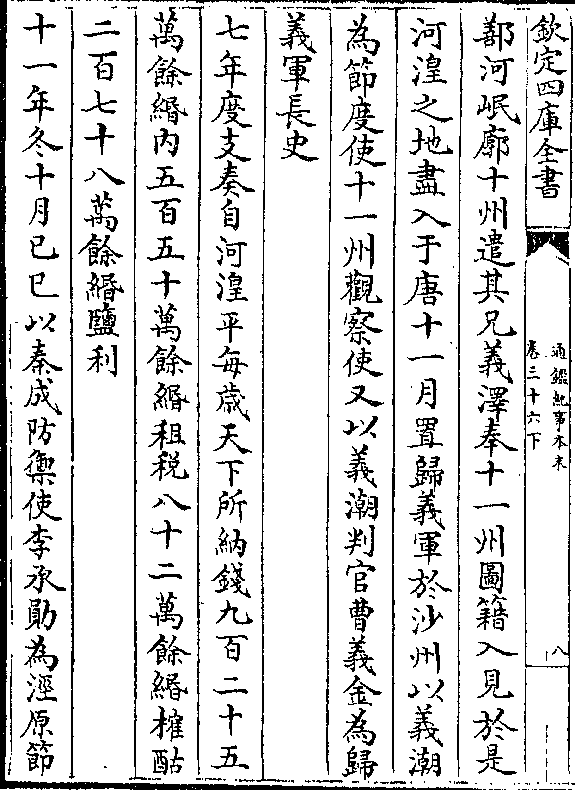 欽定四庫全書
通鑑紀事本末
卷三十六下
八
鄯河岷廓十州遣其兄義澤奉十一州圖籍入見於是
河湟之地盡入于唐十一月置歸義軍於沙州以義潮
為節度使十一州觀察使又以義潮判官曹義金為歸
義軍長史
七年度支奏自河湟平每歳天下所納錢九百二十五
萬餘緡内五百五十萬餘緡租税八十二萬餘緡榷酤
二百七十八萬餘緡鹽利
十一年冬十月已巳以秦成防禦使李承勛為涇原節